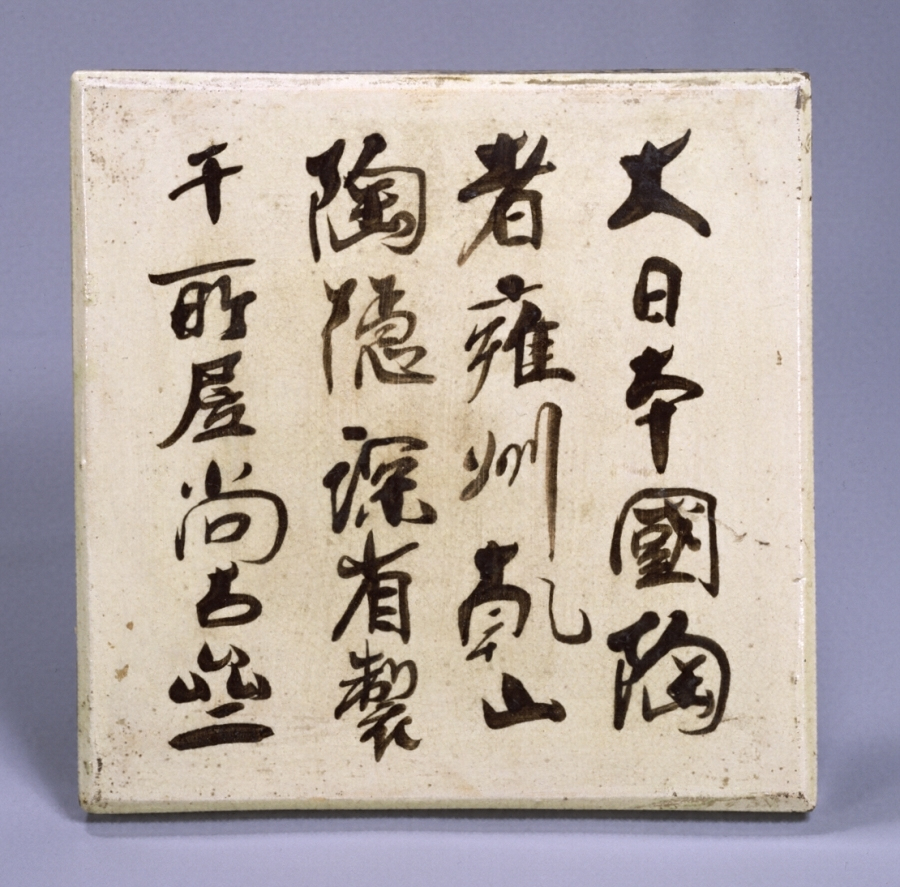 大日本國陶
者雍州乾山
陶隠深省製
于所屋尚古亝